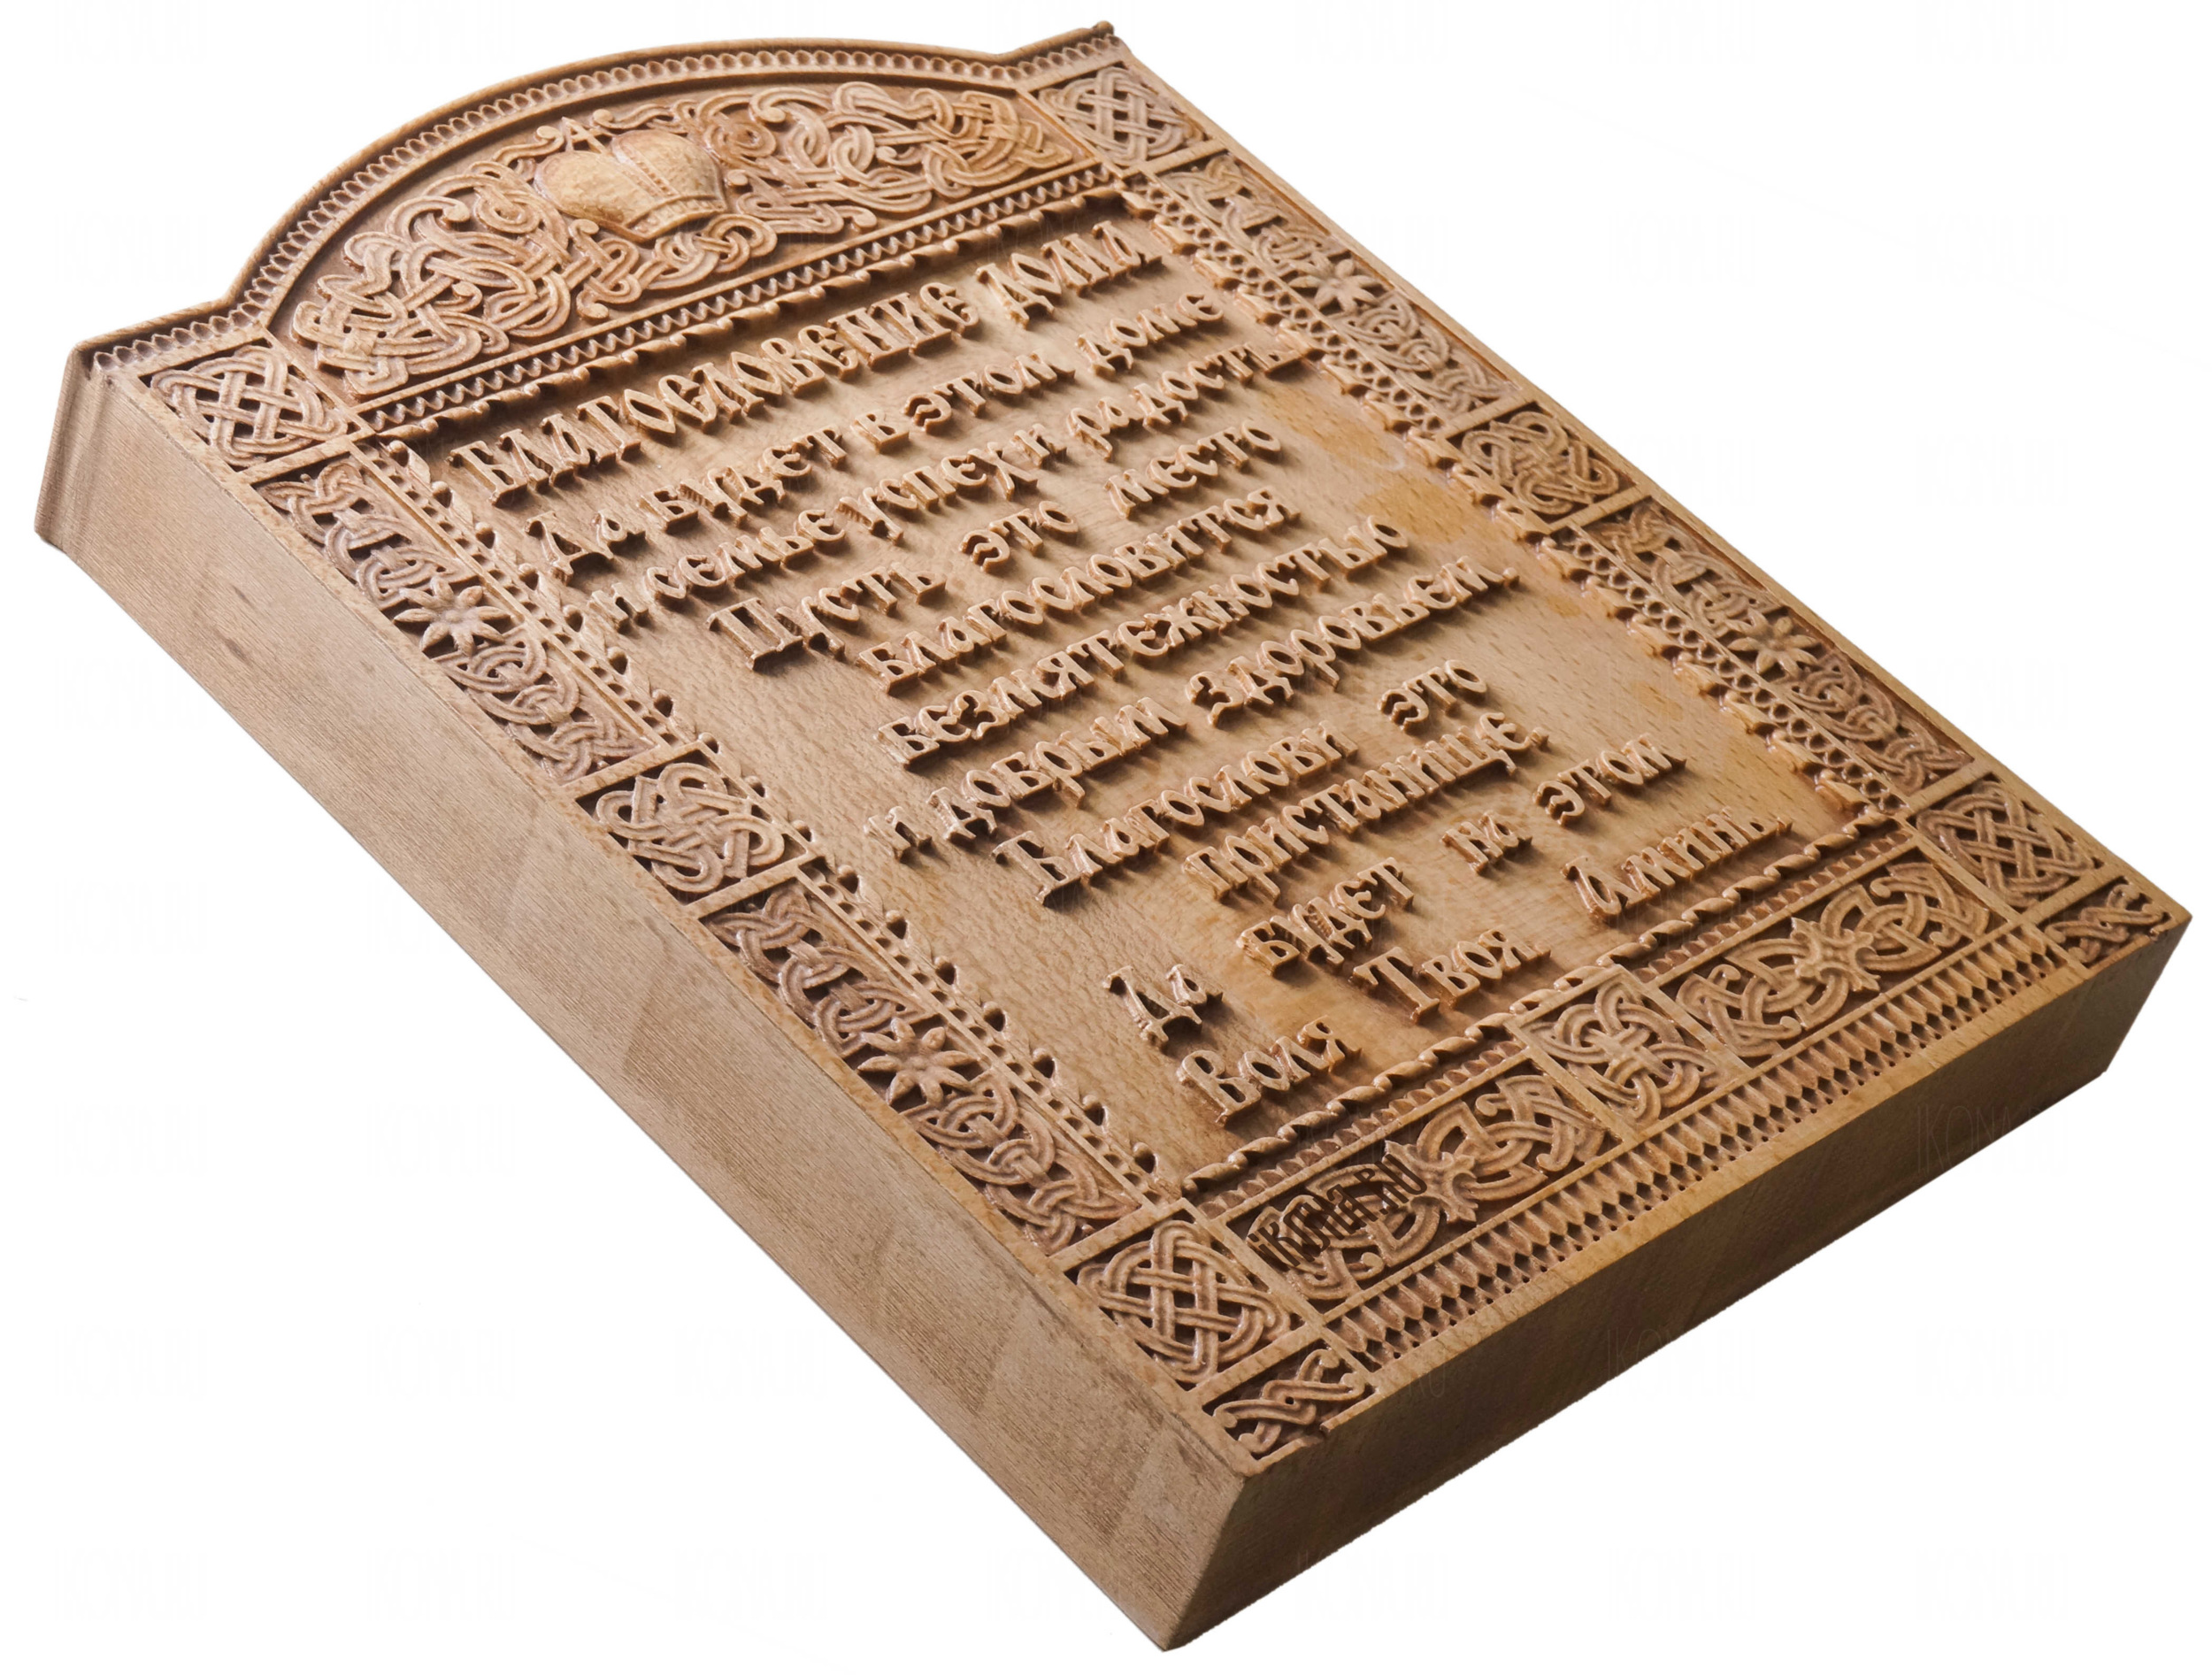 БЛАГОСЛОВЕНИЕ ДОМА
Да будет в этом доме
и семье успех и радость
Пусть это место
благословится
безмятежностью
и добрым здоровьем.
Благослови это
пристанище,
Да будет на этом
Воля Твоя Аминь.
iKONA.RU